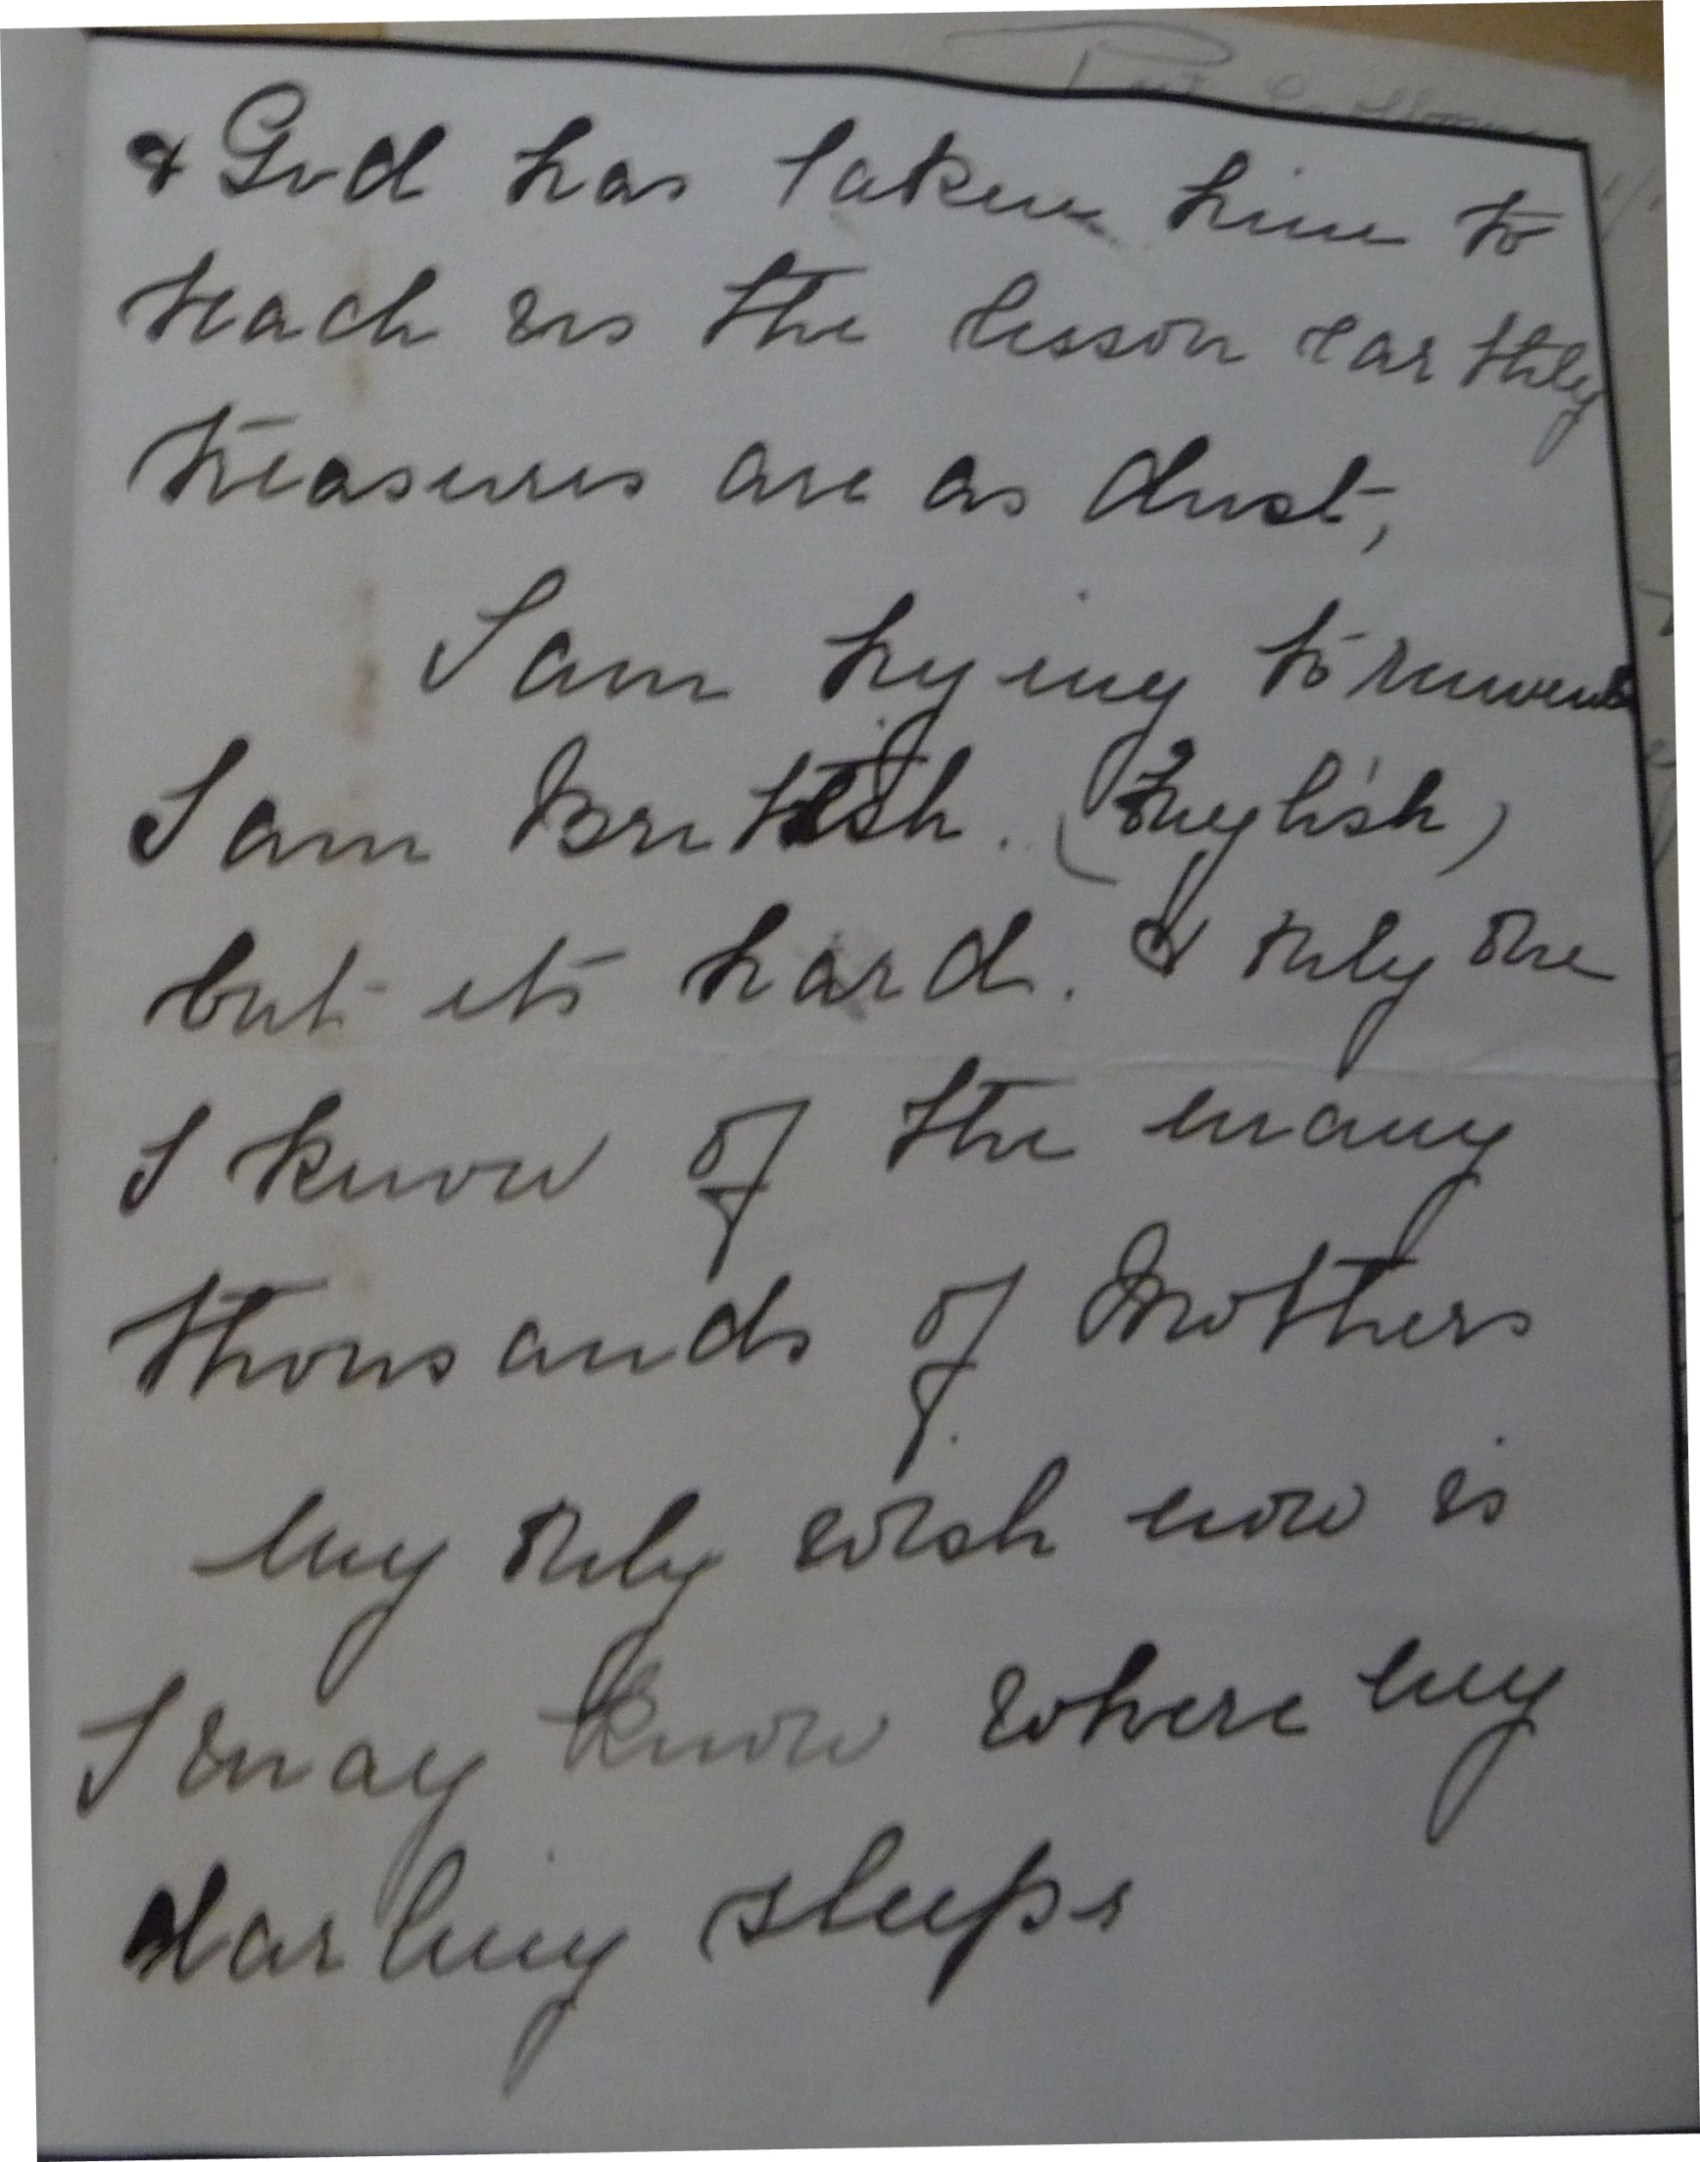 & God has taken him to
teach us the lesson earthly
treasures are as dust,
I am trying to rememb
I am British. (English)
but its hard. & only one
I know of the many
thousands of Mothers
my only wish now is
I may know where my
darling sleeps